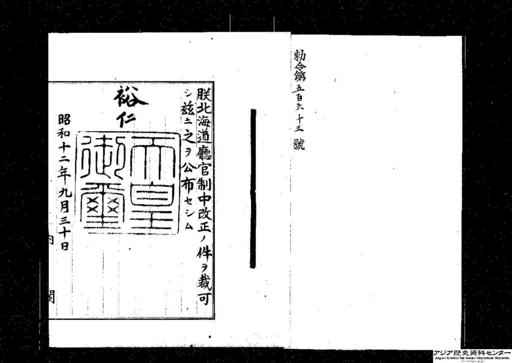 勅令第五百六十三號
朕北海道廳官制中改正ノ件ヲ裁可
シ茲ニ之ヲ公布セシム
裕仁
天皇御璽
昭和十二年九月三十日
内閣
アジア歴史資料センター
Japan Center for Asian Historical Records